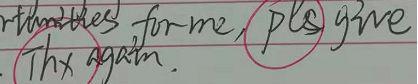 for me, pls give
. Thx again.